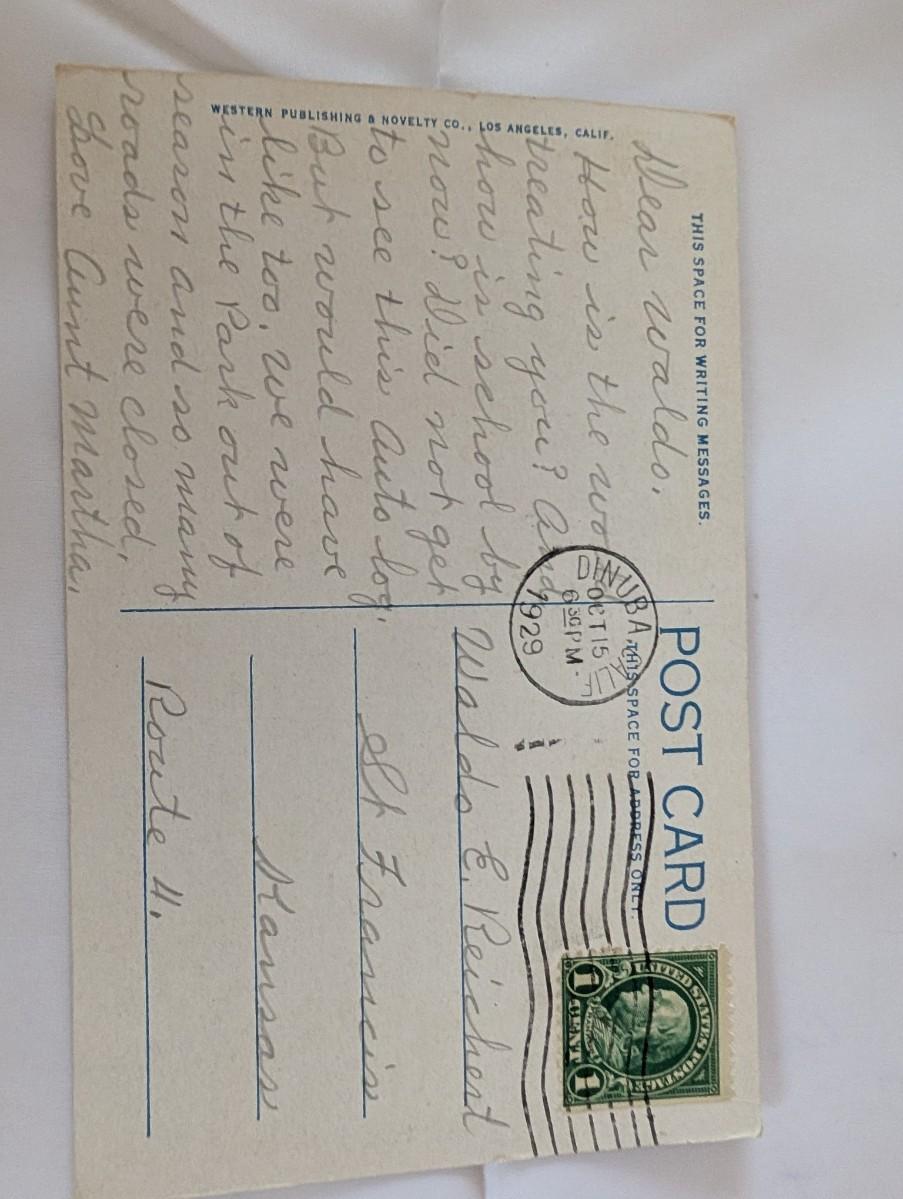 THIS SPACE FOR WRITING MESSAGES.
WESTERN PUBLISHING & NOVELTY CO., LOS ANGELES, CALIF.
Dear Waldo,
How is the
treating you? And
how is school by
now? Did not get
to see this Auto log,
But would have
like too, we were
in the Park out of
season and so many
roads were closed,
Love Aunt Martha,
POST CARD
THIS SPACE FOR ADDRESS ONLY.
DINUBA, CALIF
OCT 15
630 PM
1929
UNITED STATES POSTAGE
1 CENT 1
Waldo E. Reichert
St Francis
Kansas
Route 4.